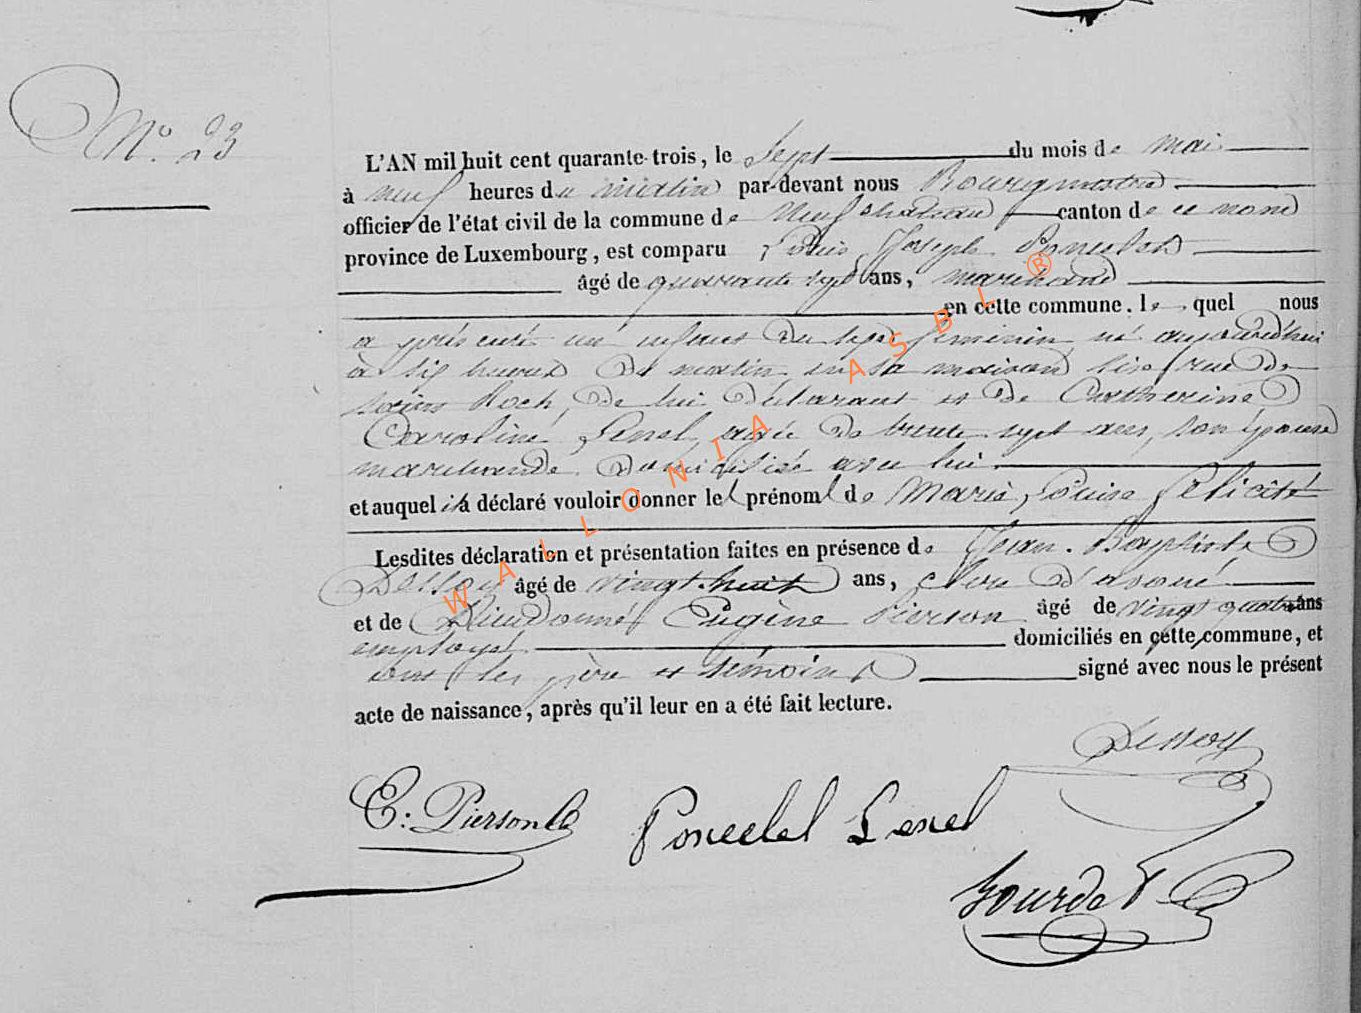 N.° 23
L'AN mil huit cent quarante-trois, le Sept du mois de mai
à neuf heures du matin par-devant nous Bourgmestre
officier de l'état civil de la commune de Neufchateau canton de ce nom
province de Luxembourg, est comparu Louis Joseph Poncelet
âgé de quarante sept ans, marchand
en cette commune, le quel nous
a présenté un enfant du sexe feminin né aujourd'hui
à six heures du matin en sa maison sise rue de
saint Roch, de lui déclarant et de Catherine
Caroline Lenel, agée de trente sept ans, son épouse
marchande domiciliée avec lui
et auquel il a déclaré vouloir donner les prénoms de Marie, Louise Félicité
Lesdites déclaration et présentation faites en présence de Jean-Baptiste
Dessoy âgé de vingt-huit ans, clerc d'avoué
et de Dieudonné Eugène Pierson âgé de vingt quatre ans
employé domiciliés en cette commune, et
ont les père et témoins signé avec nous le présent
acte de naissance, après qu'il leur en a été fait lecture.
Dessoy
E: Pierson Poncelet Lenel
Gourdet
WALLONIA ASBL ®